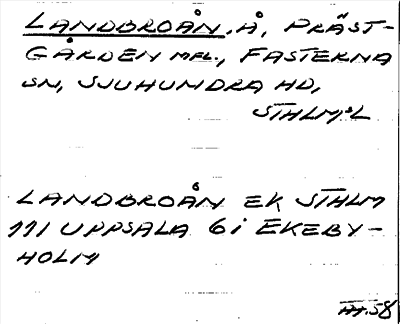 LANDBROÅN, Å, PRÄST-
GÅRDEN MFL., FASTERNA
SN, SJUHUNDRA HD,
STHLM:S L
LANDBROÅN EK STHLM
111 UPPSALA 6 i EKEBY-
HOLM
58